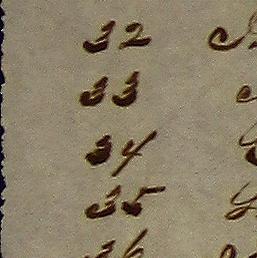 32
33
34
35
36